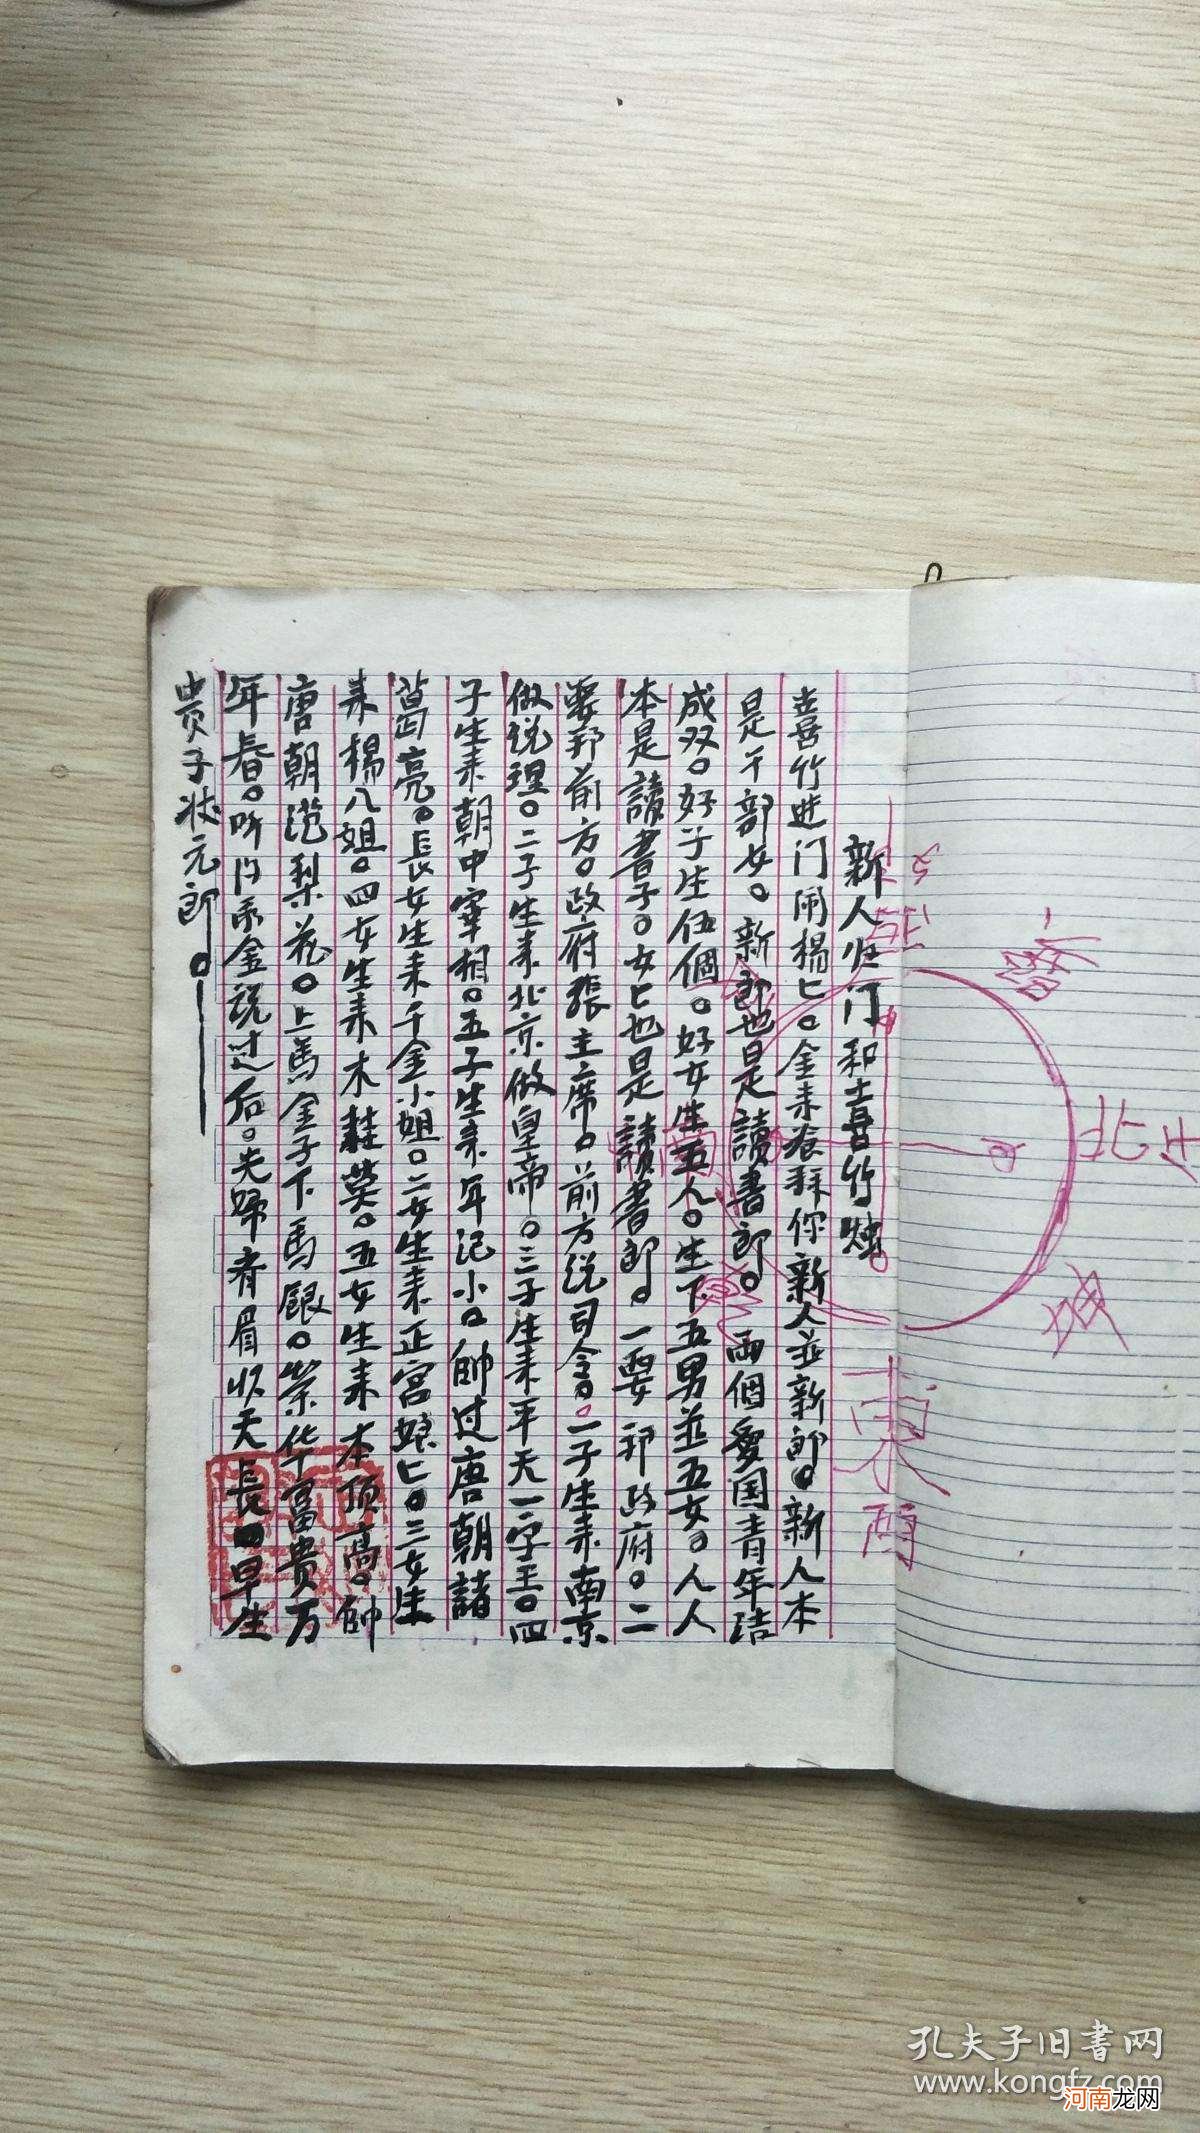 新人归门和喜竹烛。
喜竹进门闹楊匕。金来参拜你新人並新郎。新人本
是干部女。新郎也是讀書郎。两個爱国青年结
成双。好子生伍個。好女生五人。生下五男並五女。人人
本是讀書子。女匕也是讀書郎。一要耶政府。二
要耶前方。政府張主席。前方说司令。一子生来南京
做总理。二子生来北京做皇帝。三子生来平天一字王。四
子生来朝中宰相。五子生来年记小。帥过唐朝諸
葛亮。長女生来千金小姐。二女生来正宫娘匕。三女生
来楊八姐。四女生来木桂英。五女生来本顶高。帥
唐朝范梨花。上馬金子下馬銀。荣华富贵万
年春。听门系金说过后。夫婦齐眉似天長。早生
贵子状元郎。
北
南
城
孔夫子旧書网
www.kongfz.com
河南龙网